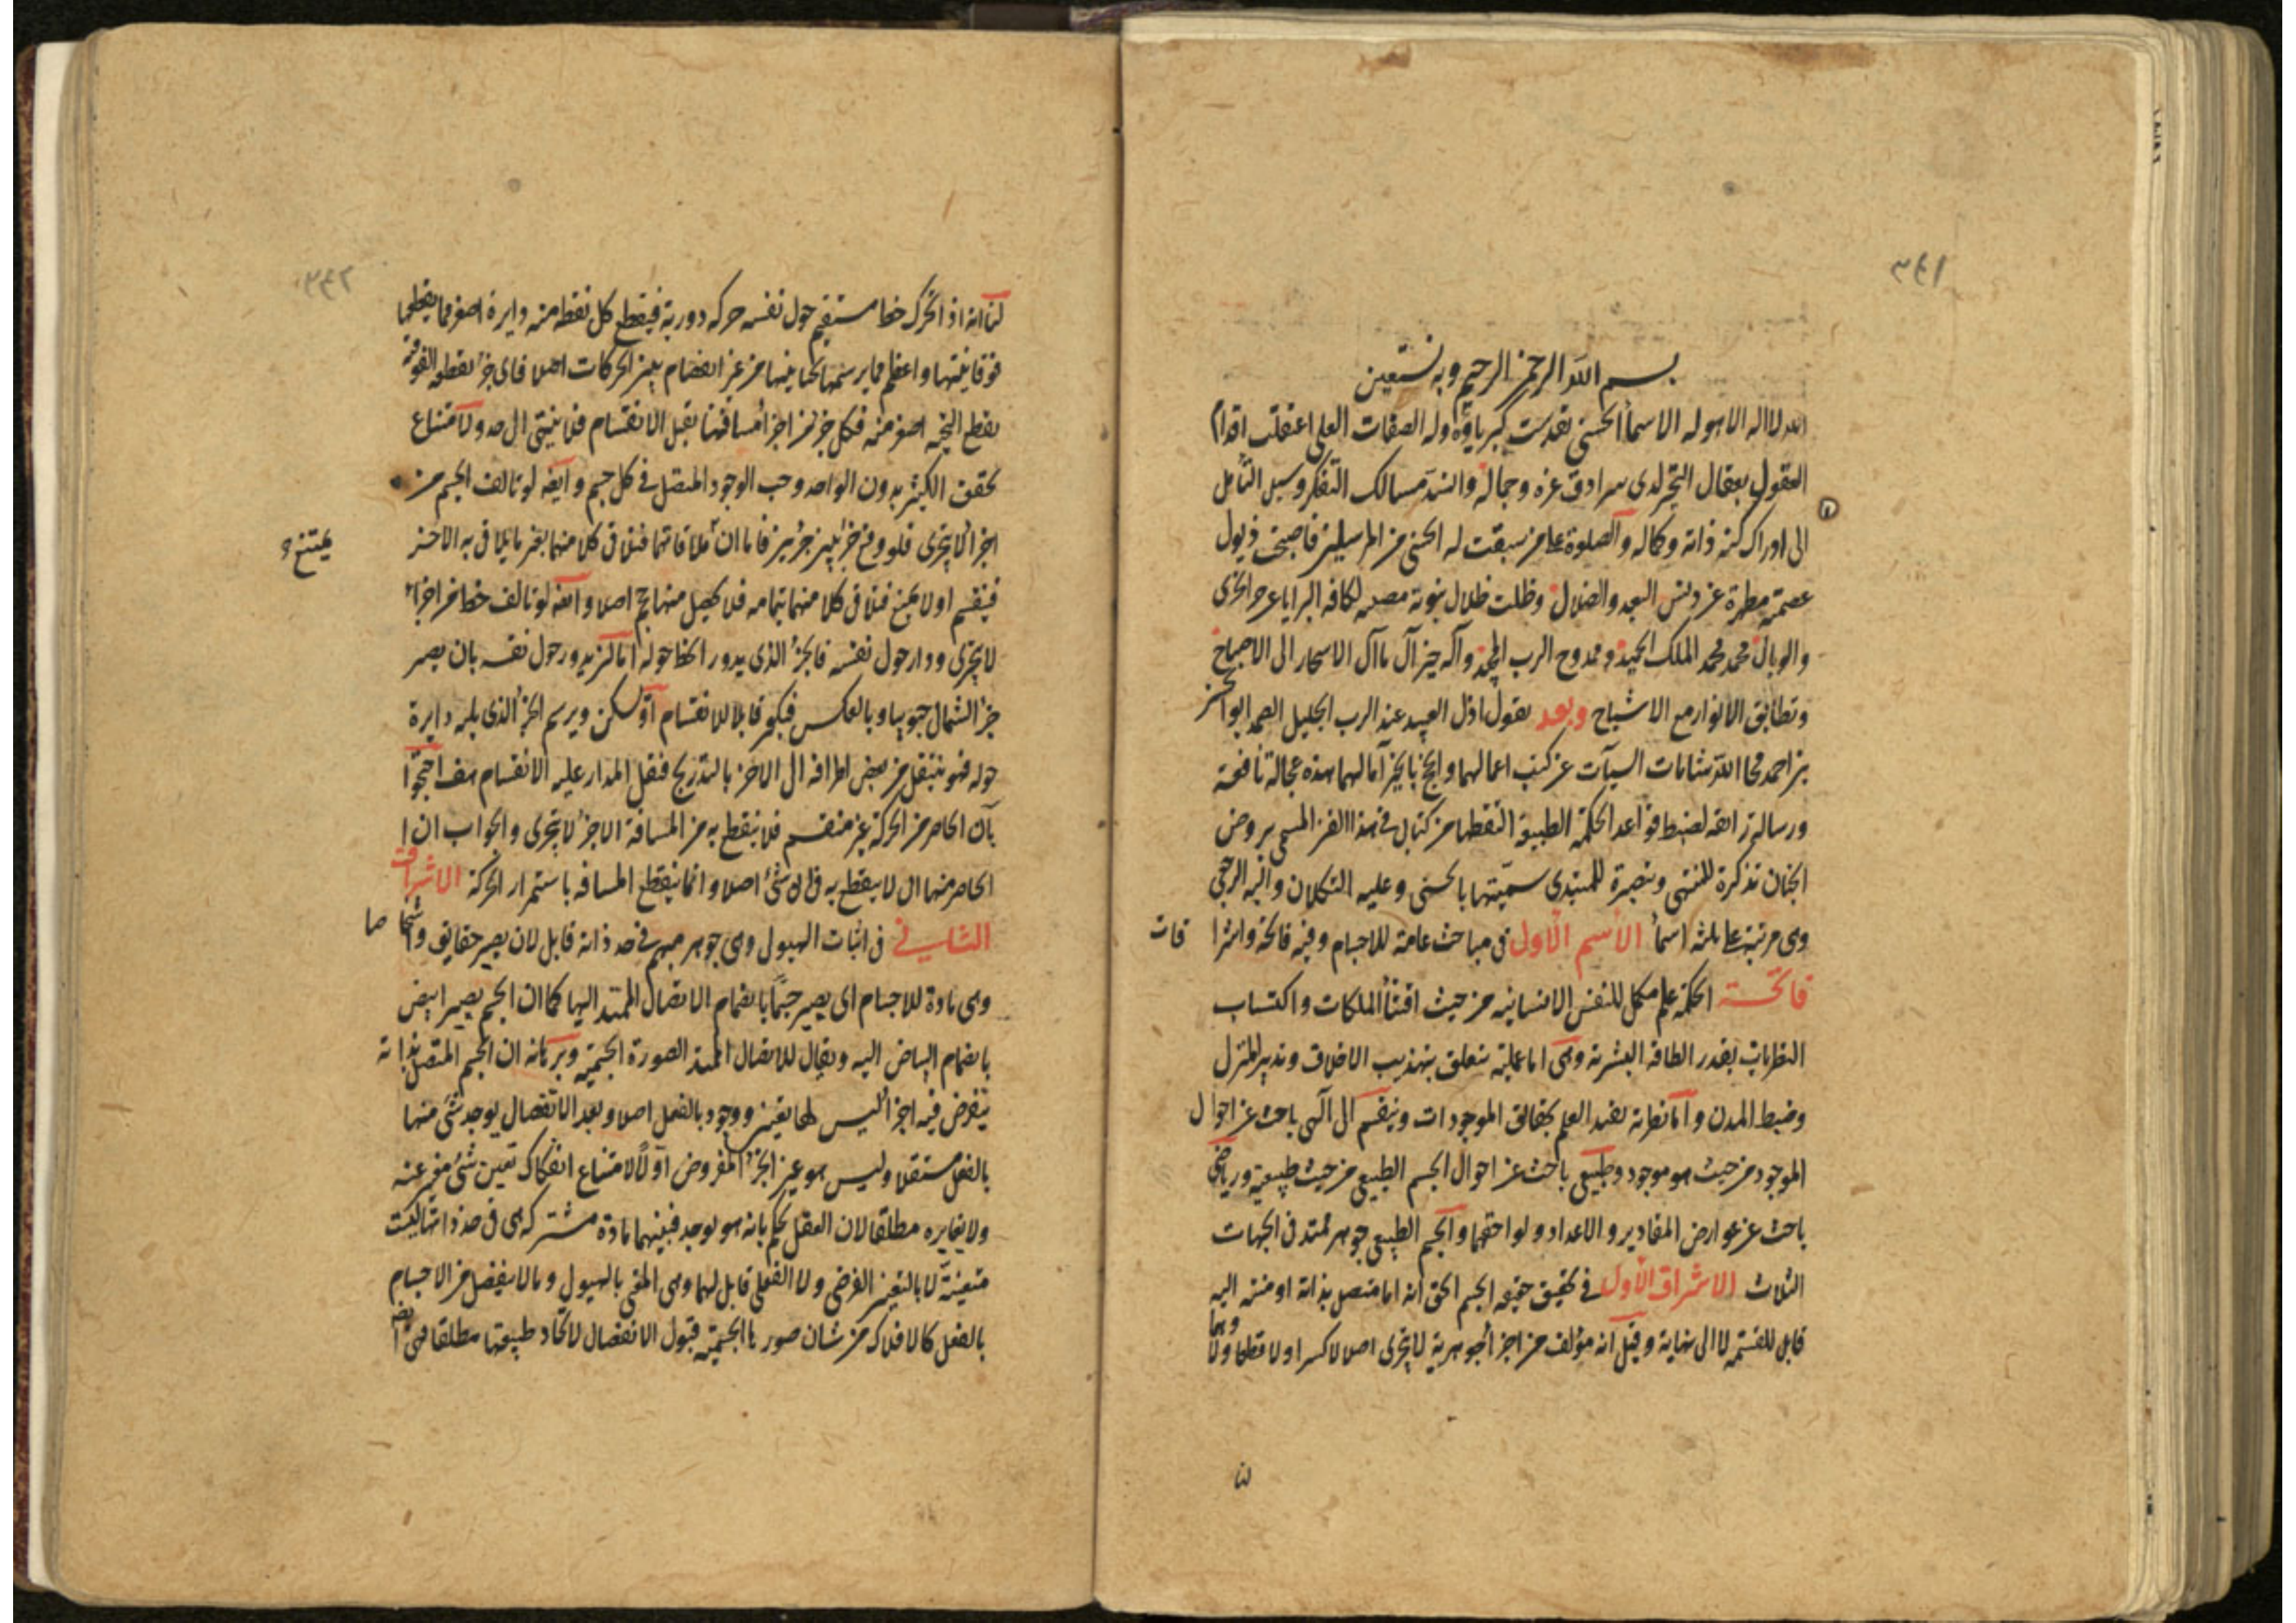 ٣٤١
بسم الله الرحمن الرحيم وبه نستعين
الله لا اله الا هو له الاسماء الحسنى تقدست كبرياؤه وله الصفات العلى اعتقلت اقدام
العقول بعقال التحير لدى سرادق عزه وجماله وانسد مسالك التفكر وسبل التأمل
الى ادراك كنه ذاته وكماله والصلوة على من سبقت له الحسنى من المرسلين فاصبحت ذيول
عصمته مطهرة عن دنس البعد والضلال وظلت ظلال نبوته لكافه البرايا عن الخزى
والوبال محمد محمد الملك الحميد وممدوح الرب المجيد وآله خير آل ما آل الاسحار الى الاصباح
وتطابق الانوار مع الاشباح وبعد يقول اذل العبيد عند الرب الجليل الصمد ابو الخير
بن احمد محا الله شامات السيآت عن كتب اعمالهما وانجح بالخير آمالهما هذه عجالة نافعة
ورسالة رائقه لضبط قواعد الحكمة الطبيعية التقطها من كتابى فى هذا الفن المسمى بروض
الجنان تذكرة للمنتهى وتبصرة للمبتدى سميتها بالحسنى وعليه التكلان واليه الرجعى
وهى مرتبة على ثلثه اسماء الاسم الاول فى مباحث عامة للاجسام وفيه فاتحة واشرا
قات
فاتحة الحكمة علم مكمل للنفس الانسانيه من حيث اقتناء الملكات واكتساب
النظريات بقدر الطاقة البشرية وهى اما عملية يتعلق بتهذيب الاخلاق وتدبير المنزل
وضبط المدن واما نظرية يفيد العلم بحقائق الموجودات وينقسم الى الهى باحث عن احوال
الموجود من حيث هو موجود وطبيعى باحث عن احوال الجسم الطبيعى من حيث طبيعية ورياضى
باحث عن عوارض المقادير والاعداد ولواحقهما والجسم الطبيعى جوهر ممتد فى الجهات
الثلاث الاشراق الاول فى تحقيق حقيقه الجسم الحق انه اما متصل بذاته او منته اليه
قابل للقسمة لا الى نهاية وقيل انه مؤلف من اجزاء جوهرية لا يتجزى اصلا لا كسرا ولا قطعا ولا وهما
لنا
٣٤٢
لنا انه اذا تحرك خط مستقيم حول نفسه حركه دورية فيقطع كل نقطه منه دايرة اصغر مما يقطعها
فوقانيتها واعظم مما يرسمها تحتانيتها من غير انفصام بين الحركات اصلا فاى جزء يقطعه الفوقية
يقطع التحتيه اصغر منه فكل جزء من اجزاء مسافتها يقبل الانقسام فلا ينتهى الى حد ولامتناع
تحقق الكثير بدون الواحد وجب الوجود المتصل فى كل جسم وايضا لو تالف الجسم من
اجزاء لا يتجزى فلو وقع جزء بين جزئين فاما ان تلاقاتهما فتلاق كلا منهما بغير ما يلاقى به الآخر
يمتنع
فينقسم اولا يمنع فتلاق كلا منهما بتمامه فلا يحصل منها حجم اصلا وايضا لو تالف خط من اجزاء
لا يتجزى ودار حول نفسه فالجزء الذى يدور الخط حوله اما ان يدور حول نفسه بان يصير
جزء الشمال جنوبيا وبالعكس فيكون قابلا للانقسام او يسكن ويرسم الجزء الذى يليه دايرة
حوله فهو ينتقل من بعض اطرافه الى الاخر بالتدريج فنقل المدار عليه الانقسام هف احتجوا
بان الحاضر من الحركة غير منقسم فلا ينقطع به من المسافة الا جزء لا يتجزى والجواب ان
الحاضر منها لا يقطع به شئ اصلا وانما ينقطع المسافه باستمرار الحركة الاشراق
الثانى فى اثبات الهيولى وهى جوهر مبهم فى حد ذاته قابل لان يصير حقايق واشخا
صا
وهى مادة للاجسام اى يصير جسما بانضمام الاتصال الممتد اليها كما ان الجسم يصير ابيض
بانضمام البياض اليه ويقال للاتصال الممتد الصورة الجسمية وبرهانه ان الجسم المتصل بذاته
يفرض فيه اجزاء ليس لها تعين ووجود بالفعل اصلا وبعد الانفصال يوجد شئ منها
بالفعل مستقلا وليس هو عين الجزء المفروض اولا لامتناع انفكاك تعين شئ عنه
ولا يغايره مطلقا لان العقل يحكم بانه هو لوجد فبينهما مادة مشتركه هى فى حد ذاتها ليست
متعينة لا بالتعين الفرضى ولا الفعلى قابل لهما وهى المعنى بالهيولى وما لا ينفصل من الاجسام
بالفعل كالافلاك من شان صورها الجسمية قبول الانفصال لاتحاد طبيعتها مطلقا فهى ايضا